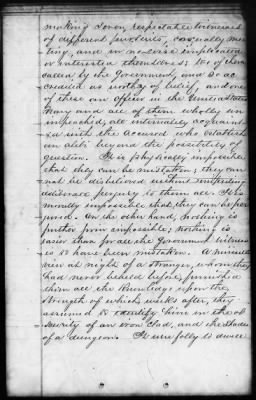 making seven respectable witnesses
of different positions, cordially
and in no sense implicated
or interested themselves; six of them
called by the Government, and so ac
credited as worthy of belief, and one
of these an officer in the United States
Navy and all of them wholly un
impeached, all intimately acquaint
ed with the accused who establish
an alibi beyond the possibility of
question. It is physically impossible
that they can be mistaken; they can
not be disbelieved without imputing
perjury to them all. It is
morally impossible that they can be per
jured. On the other hand, nothing is
further from impossible; nothing is
easier than for all the Government witness
es to have been mistaken. A minute's
view at night of a stranger, whom they
had never beheld before, furnished
them all the knowledge upon the
strength of which weeks after, they
assumed to identify him in the ob
scurity of an iron clad, and the shades
of a dungeon. It were folly to dwell